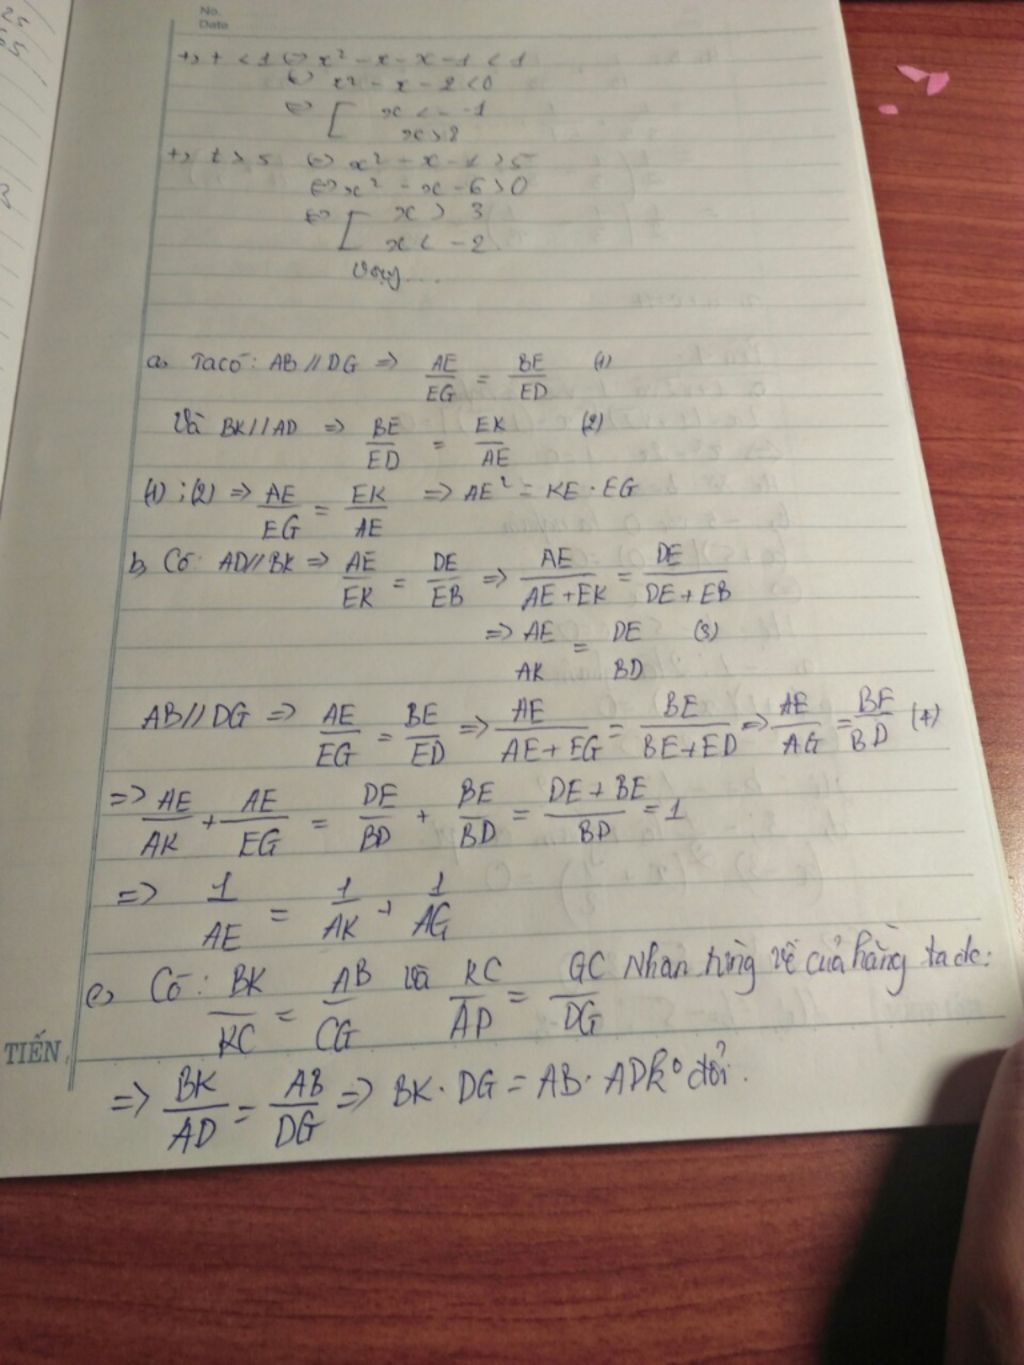 No.
Date
+) t < 1 ⇔ x² - x - x - 1 < 1
⇔ x² - x - 2 < 0
⇔ [ x < -1
x > 2
+) t > 5 ⇔ x² - x - 1 > 5
⇔ x² - x - 6 > 0
⇔ [ x > 3
x < -2
Vậy...
a) Ta có: AB // DG => AE/EG = BE/ED (1)
Và BK // AD => BE/ED = EK/AE (2)
(1) ; (2) => AE/EG = EK/AE => AE² = KE . EG
b, Có: AD // BK => AE/EK = DE/EB => AE/AE+EK = DE/DE+EB
=> AE/AK = DE/BD (3)
AB // DG => AE/EG = BE/ED => AE/AE+EG = BE/BE+ED => AE/AG = BE/BD (4)
=> AE/AK + AE/EG = DE/BD + BE/BD = DE+BE/BD = 1
=> 1/AE = 1/AK + 1/AG
c) Có: BK/KC = AB/CG và KC/AD = GC/DG Nhan từng vế của hằng ta đc:
TIẾN
=> BK/AD = AB/DG => BK . DG = AB . AD k° đổi.